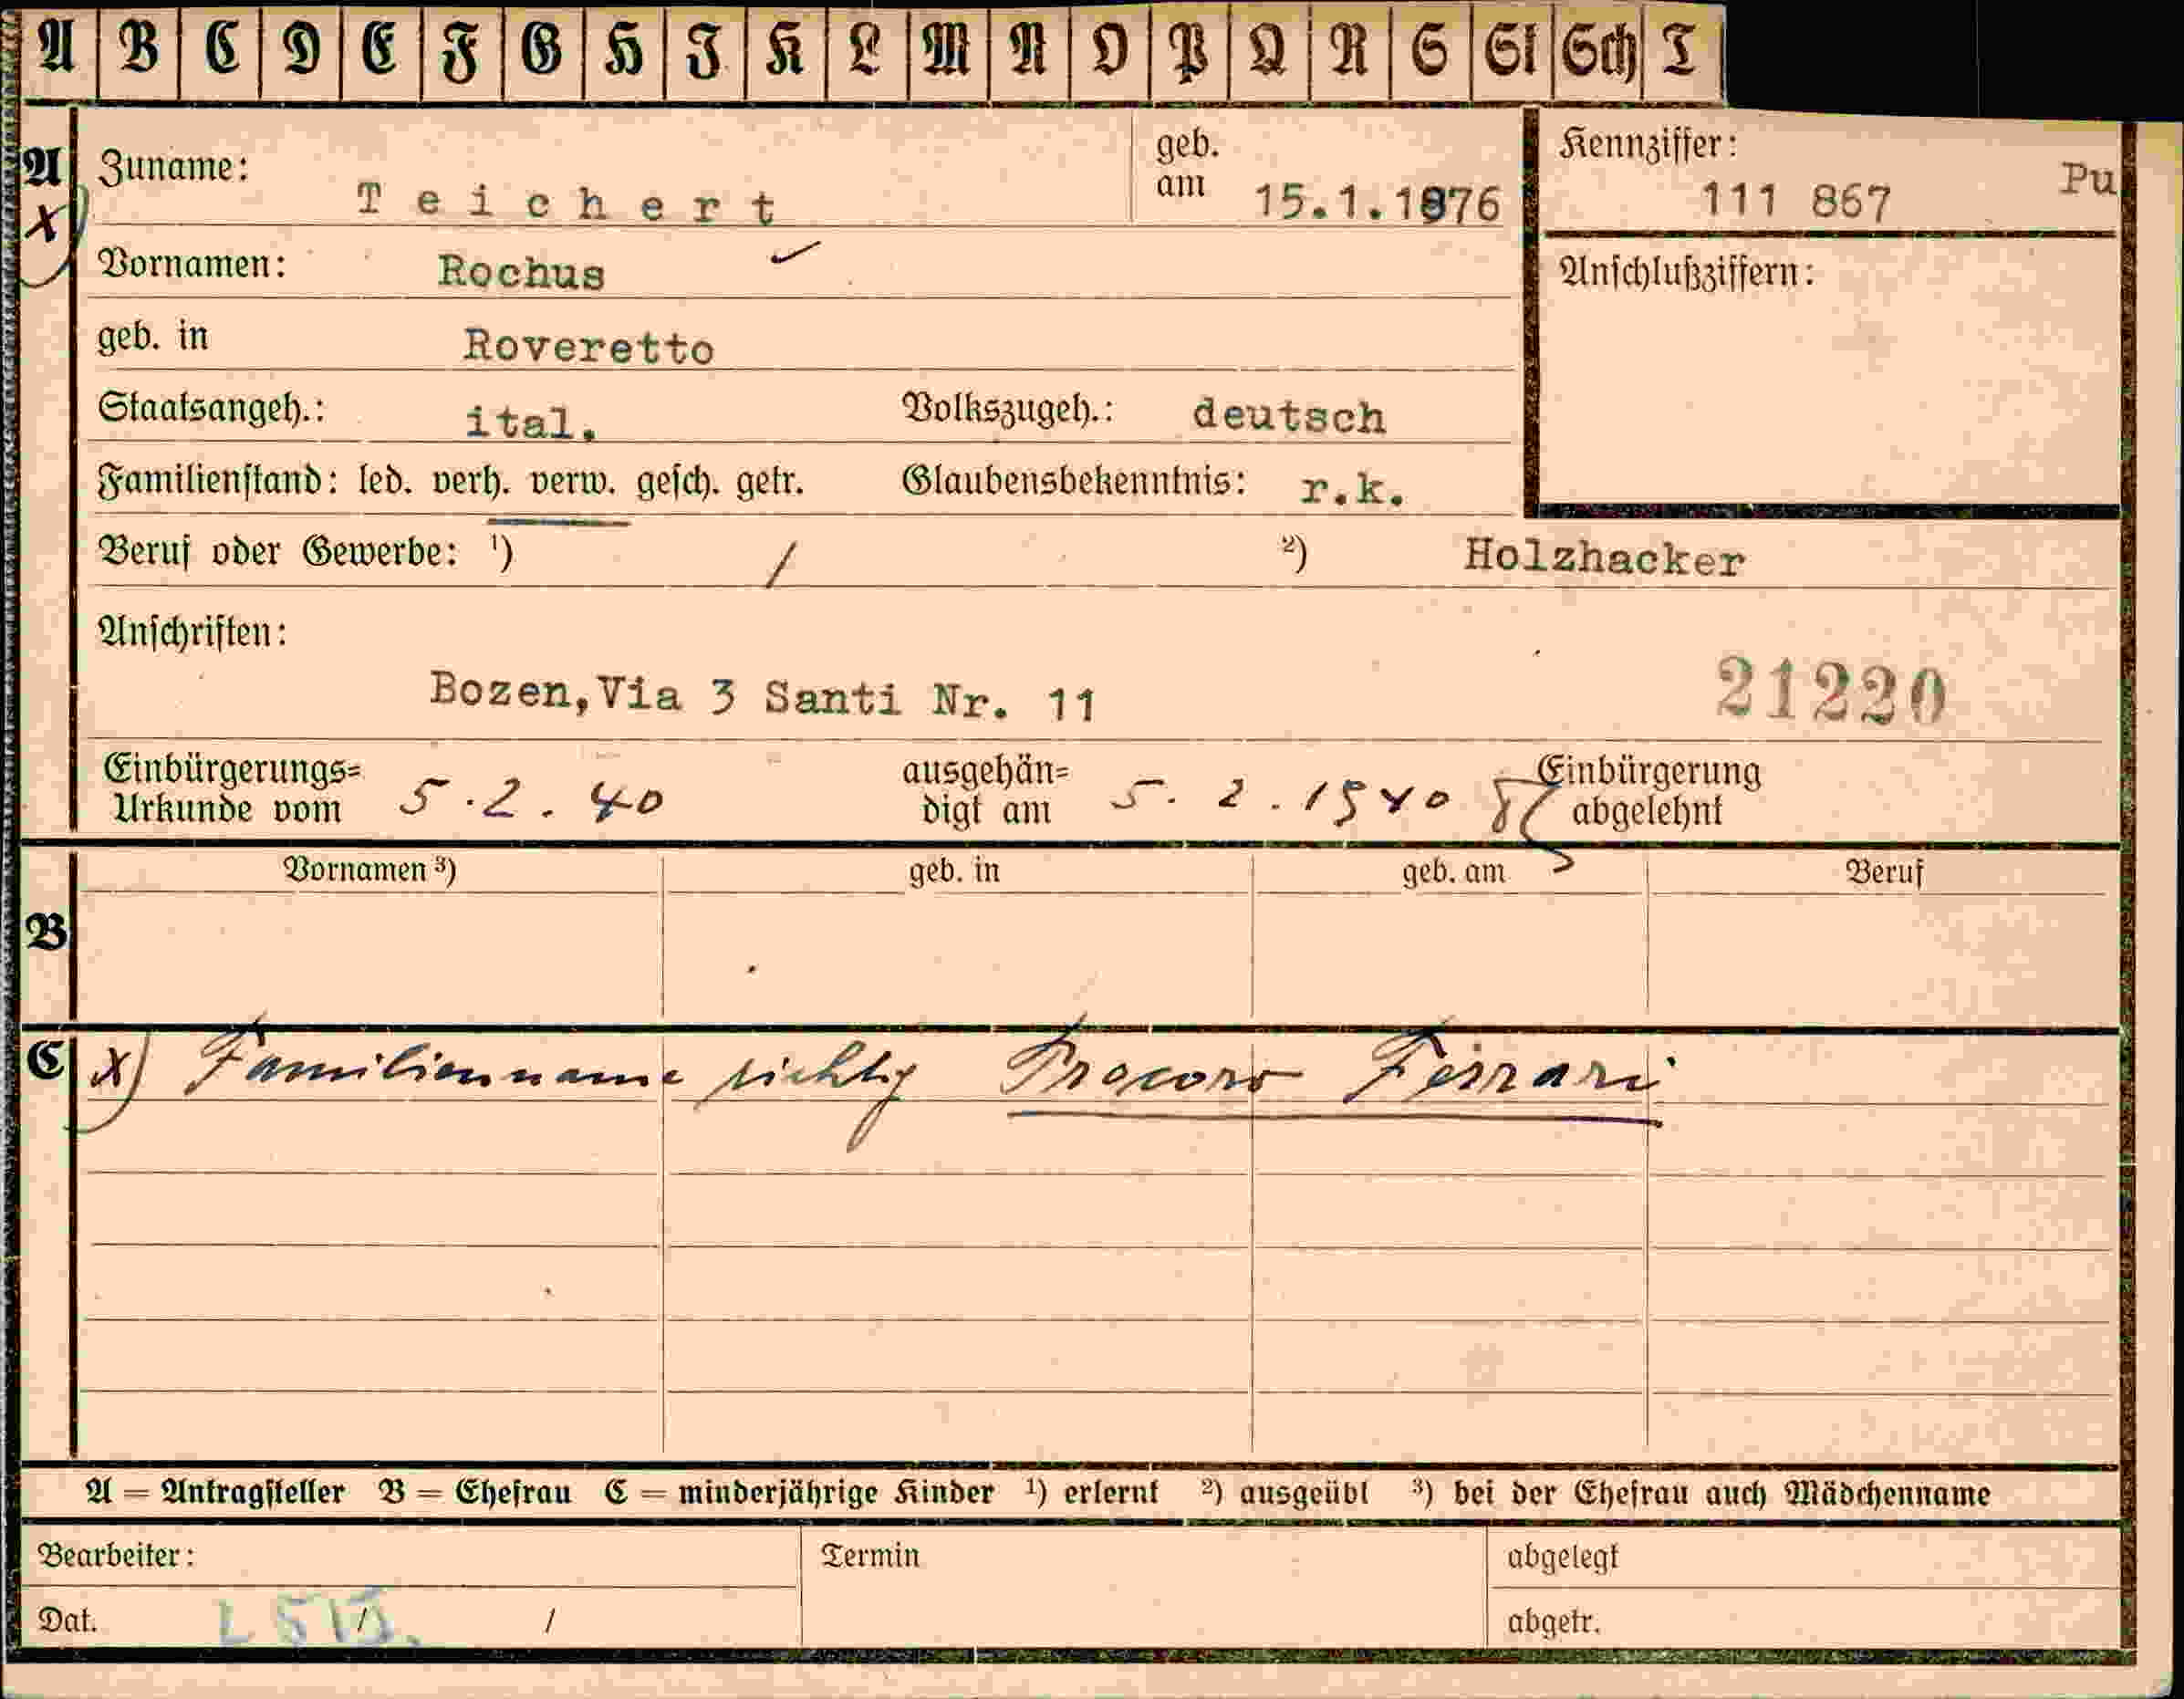 A B C D E F G H I K L M N O P Q R S St Sch T
A Zuname: Teichert geb. am 15.1.1876 Kennziffer: 111 867 Pu
x)
Vornamen: Rochus Anschlußziffern:
geb. in Roveretto
Staatsangeh.: ital. Volkszugeh.: deutsch
Familienstand: led. verh. verw. gesch. getr. Glaubensbekenntnis: r.k.
Beruf oder Gewerbe: ¹) / ²) Holzhacker
Anschriften:
Bozen, Via 3 Santi Nr. 11 21220
Einbürgerungs= ausgehän= Einbürgerung
Urkunde vom 5.2.40 digt am 5.2.1940 abgelehnt
Vornamen ³) geb. in geb. am Beruf
B
C x) Familienname richtig Procoro Ferrari
A = Antragsteller B = Ehefrau C = minderjährige Kinder ¹) erlernt ²) ausgeübt ³) bei der Ehefrau auch Mädchenname
Bearbeiter: Termin abgelegt
Dat. / / abgetr.